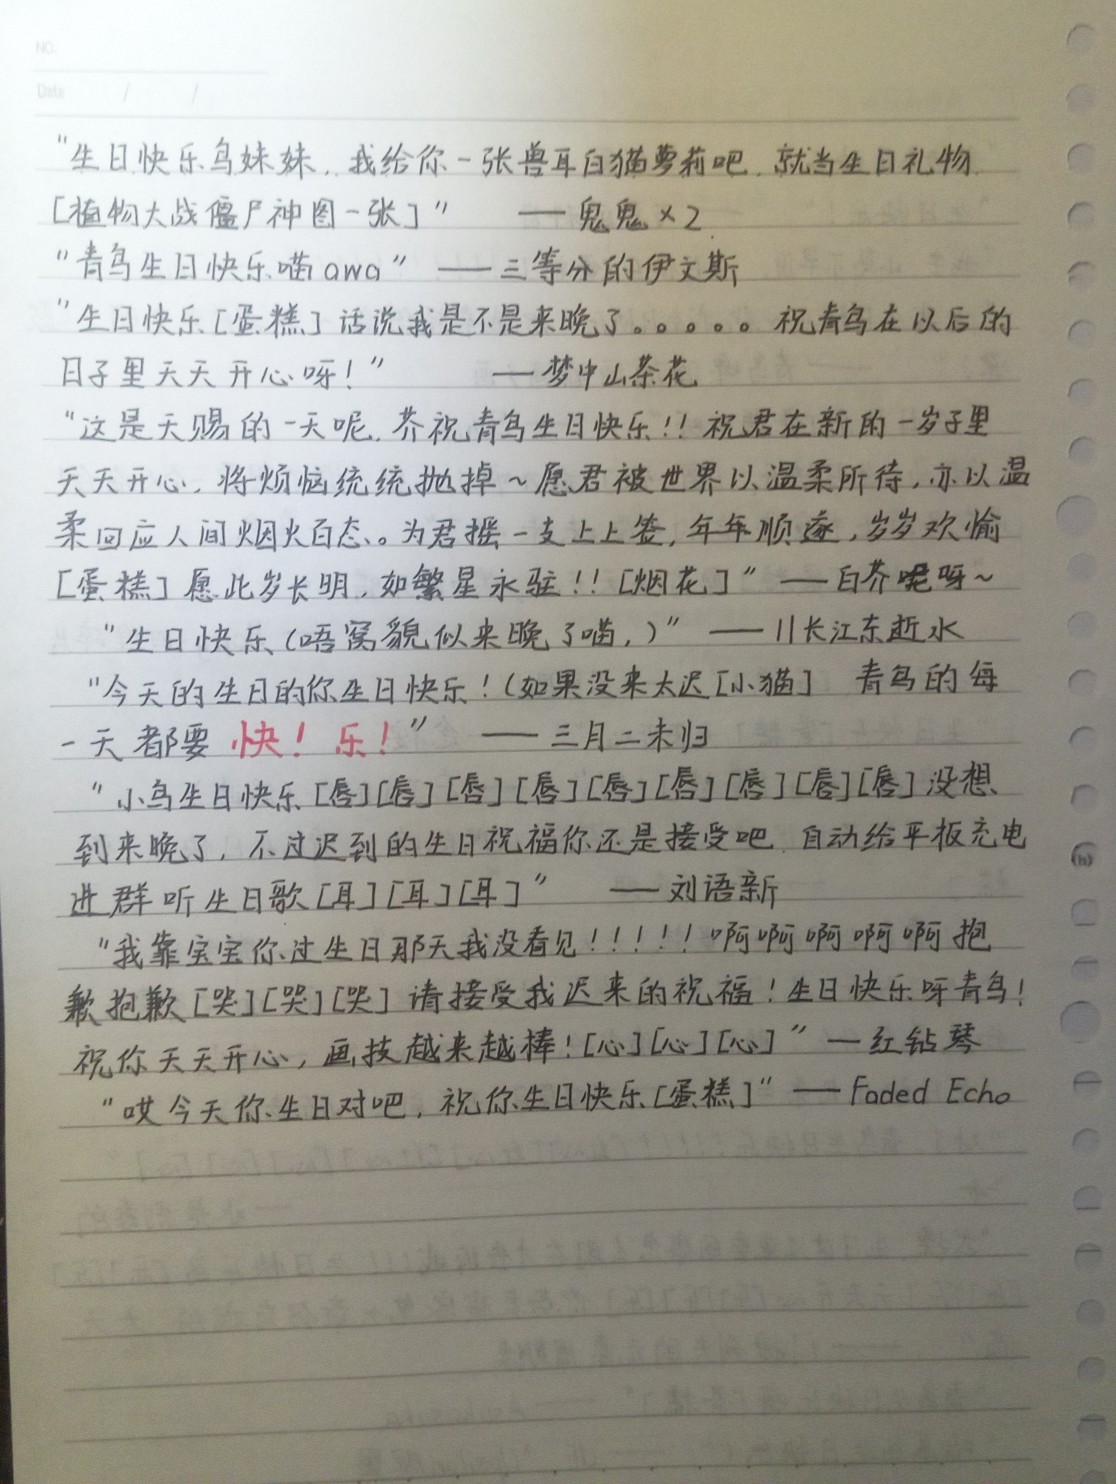 NO.
Date / /
"生日快乐鸟妹妹，我给你一张兽耳白猫萝莉吧，就当生日礼物
[植物大战僵尸神图一张]" ——鬼鬼×2
"青鸟生日快乐喵awa" ——三等分的伊文斯
"生日快乐[蛋糕]话说我是不是来晚了。。。。。祝青鸟在以后的
日子里天天开心呀！" ——梦中山茶花
"这是天赐的一天呢，芥祝青鸟生日快乐！！祝君在新的一岁子里
天天开心，将烦恼统统抛掉～愿君被世界以温柔所待，亦以温
柔回应人间烟火百态。为君摇一支上上签，年年顺遂，岁岁欢愉
[蛋糕]愿此岁长明，如繁星永驻！！[烟花]" ——白芥呢呀～
"生日快乐(唔窝貌似来晚了喵，)" ——川长江东逝水
"今天的生日的你生日快乐！(如果没来太迟[小猫] 青鸟的每
一天都要 快！乐！" ——三月二未归
"小鸟生日快乐[唇][唇][唇][唇][唇][唇][唇][唇][唇]没想
到来晚了，不过迟到的生日祝福你还是接受吧 自动给平板充电
进群听生日歌[耳][耳][耳]" ——刘语新
"我靠宝宝你过生日那天我没看见！！！！！！啊啊啊啊啊抱
歉抱歉[哭][哭][哭]请接受我迟来的祝福！生日快乐呀青鸟！
祝你天天开心，画技越来越棒！[心][心][心]" ——红钻琴
"哎今天你生日对吧，祝你生日快乐[蛋糕]" ——Faded Echo